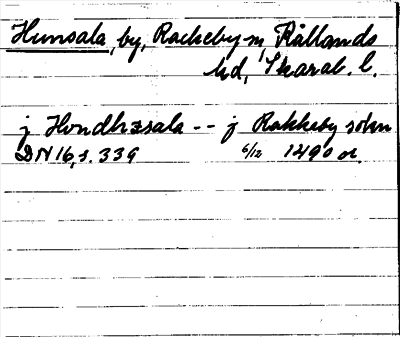 Hunsala, by, Rackeby sn, Kållands
hd, Skarab. l.
j Hondhzsala -- j Rakkeby sokn
DN 16, s. 339 6/12 1490 or.